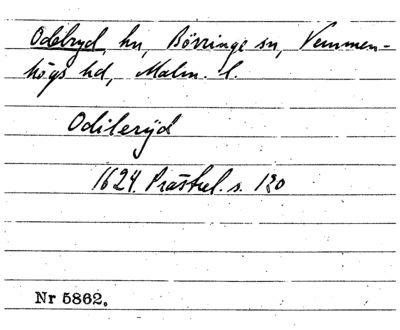 Odebryd, hn, Börringe sn, Vemmen-
högs hd, Malm. l.
Odileryd
1624. Prästrel. s. 120
Nr 5862.